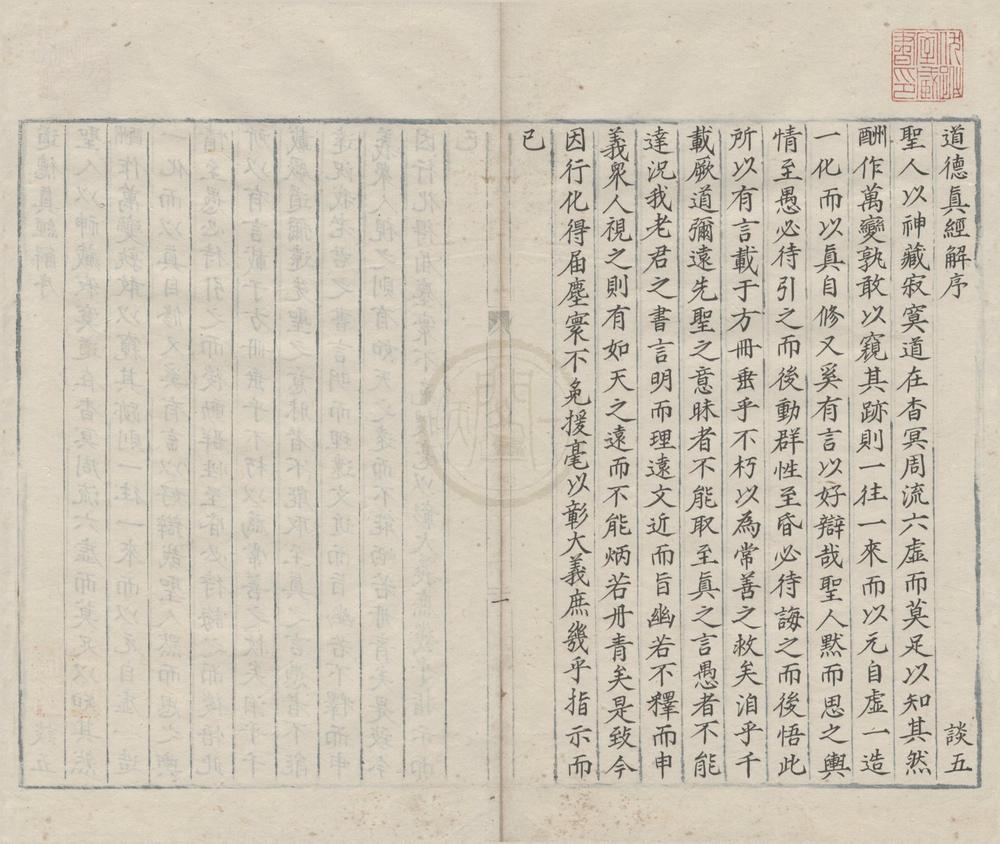 道德真經解序 談五
聖人以神藏寂寞道在杳冥周流六虛而莫足以知其然
酬作萬變孰敢以窺其跡則一往一來而以元自虛一造
一化而以真自修又奚有言以好辯哉聖人默而思之輿
情至愚必待引之而後動群性至昏必待誨之而後悟此
所以有言載于方冊垂乎不朽以為常善之救矣洎乎千
載厥道彌遠先聖之意昧者不能取至真之言愚者不能
達況我老君之書言明而理遠文近而旨幽若不釋而申
義衆人視之則有如天之遠而不能炳若丹青矣是致今
因行化得届塵寰不免援毫以彰大義庶幾乎指示而
已
一